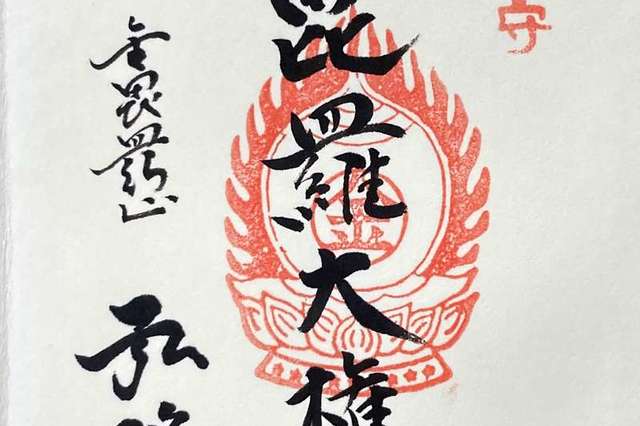 守
毘羅大権
金
金毘羅山
弘